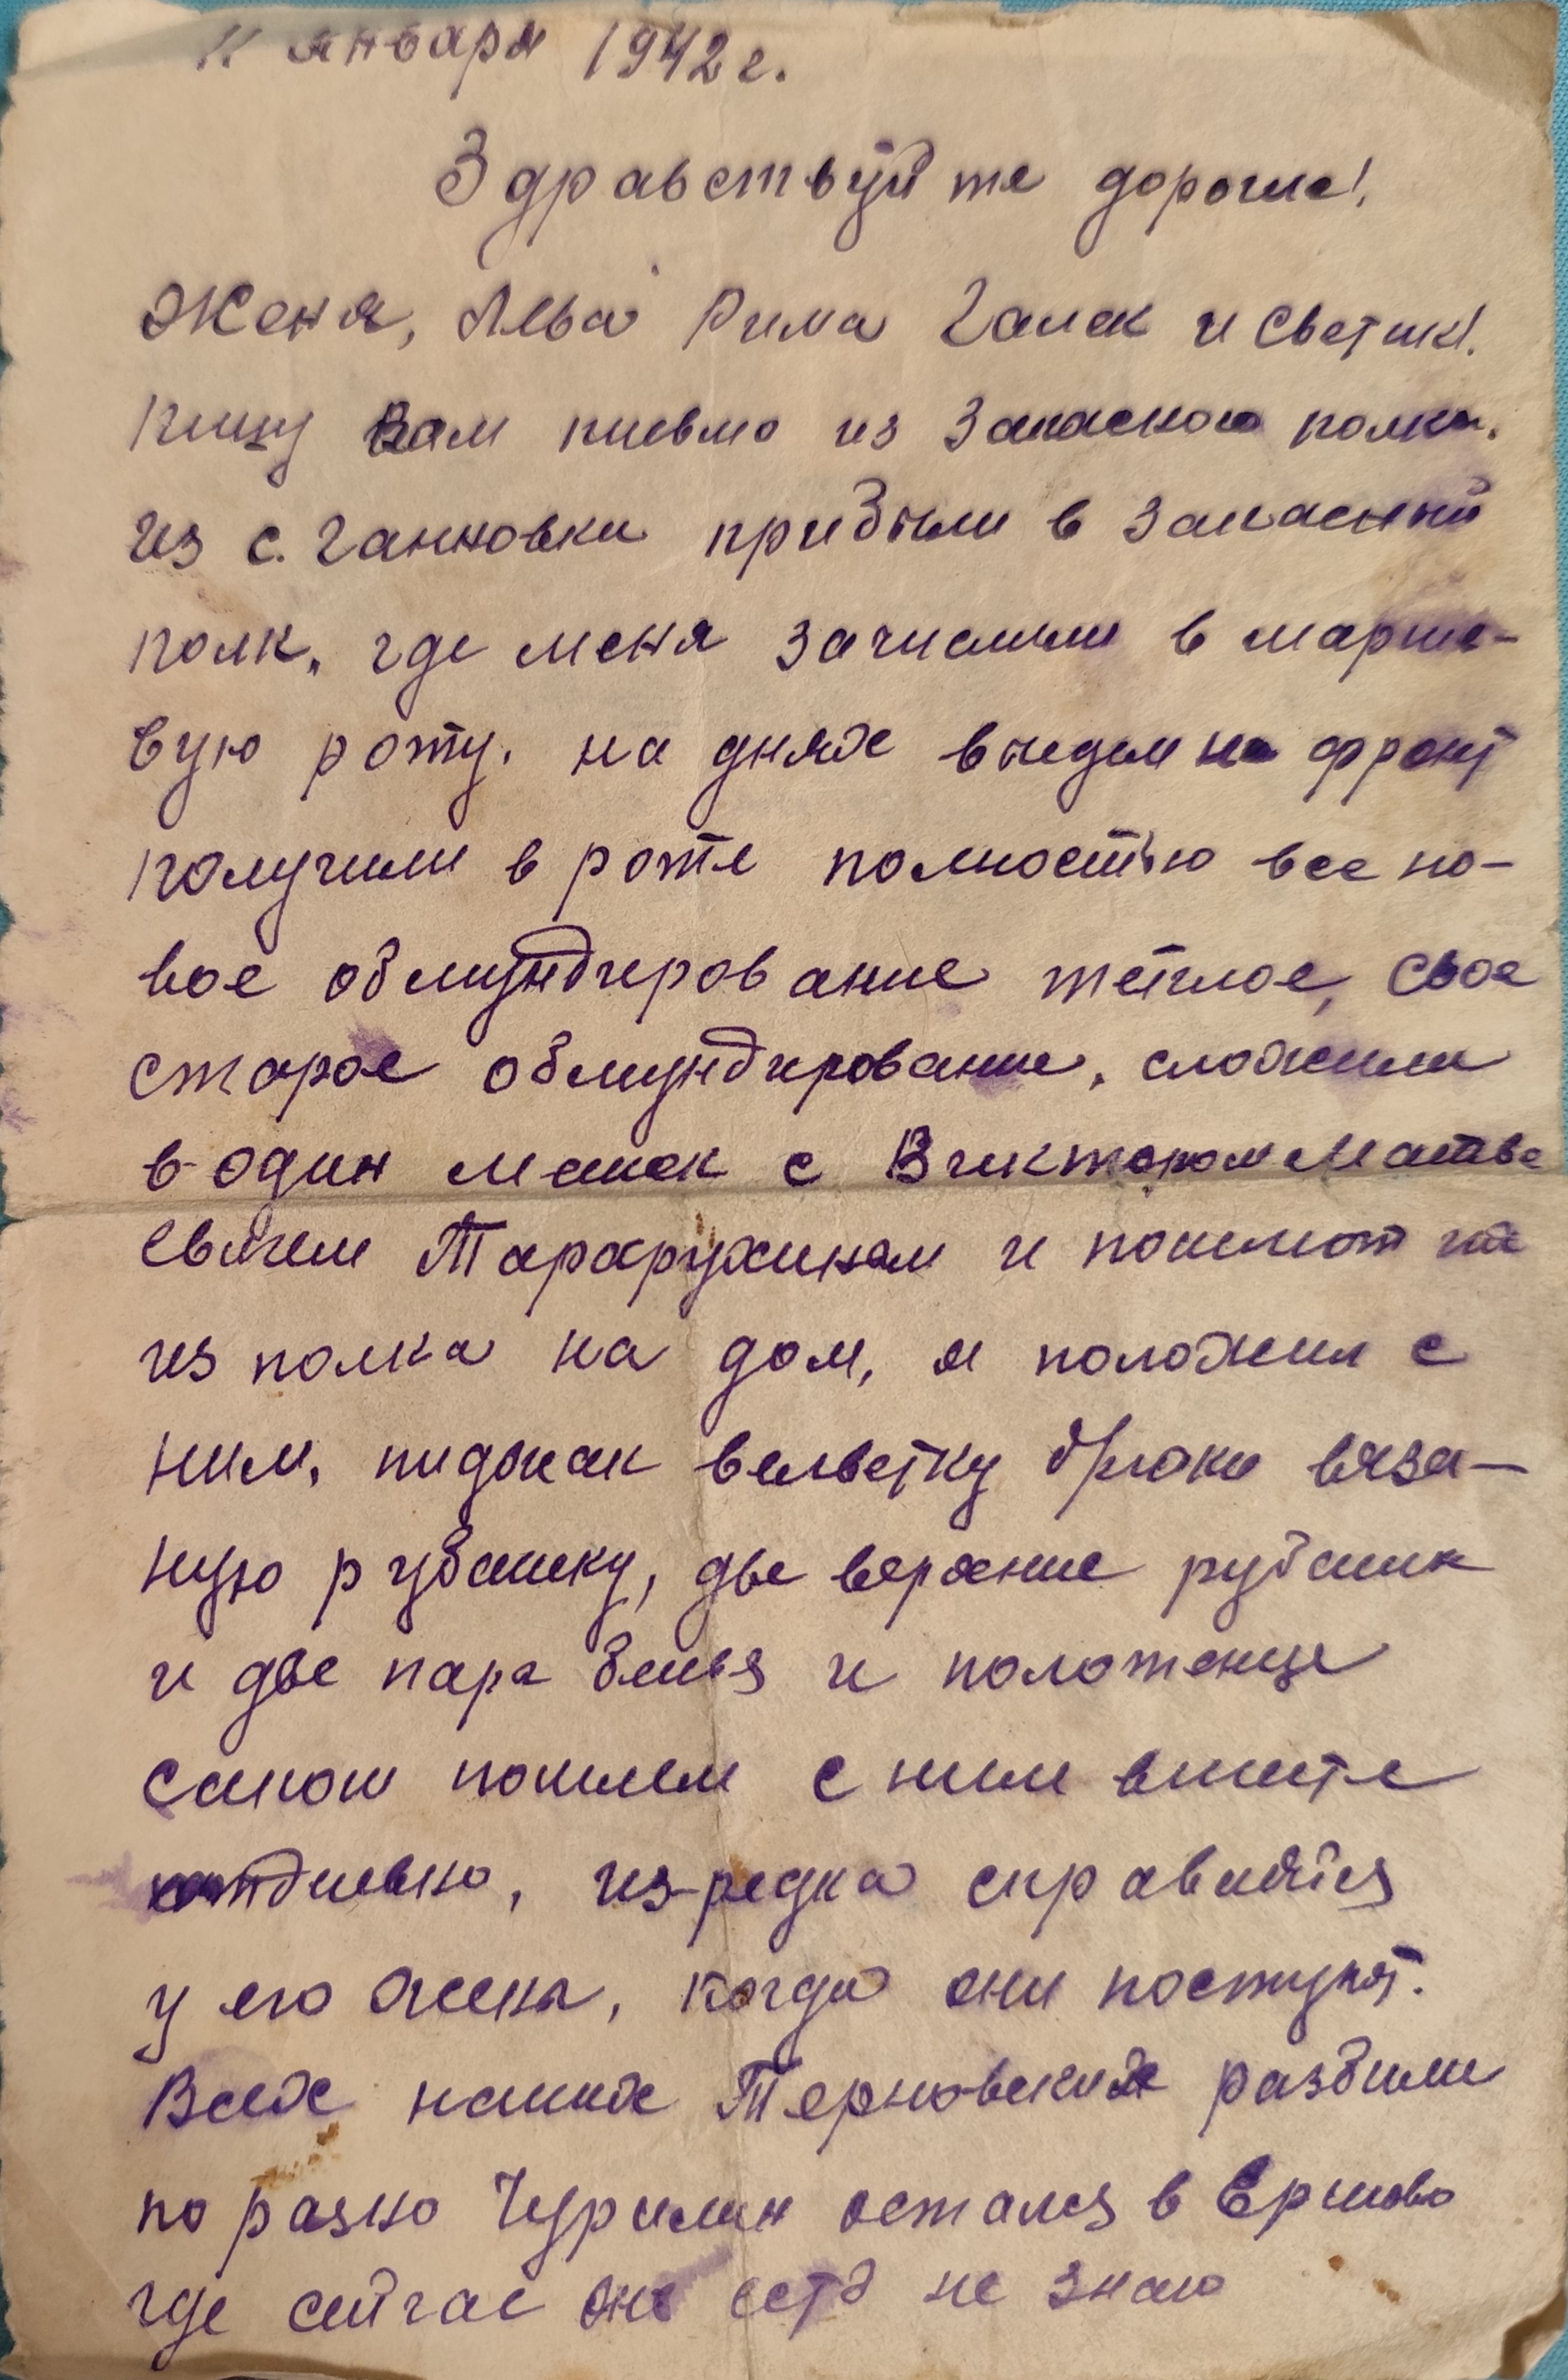 11 января 1942 г.
Здравствуйте дорогие!
Женя, Лева Рима Галек и Светик!
Пишу Вам письмо из запасного полка.
из с. Ганновки прибыли в запасный
полк, где меня зачислили в марше-
вую роту. на днях выедем на фронт
получили в роте полностью все но-
вое обмундирование теплое, свое
старое обмундирование, сложили
в один мешок с Виктором Матве
евичем Тарарухиным и пошлют
из полка на дом, я положил с
ним, пиджак вельветку брюки вяза-
ную рубашку, две верхние рубашк
и две пара белья и полотенце
сапоги пошлем с ним вместе
отдельно, из-редка справляйтся
у его жены, когда они поступят.
Всех наших Терновских разбили
по разно Чурилин остался в Ершово
где сейчас он есть не знаю